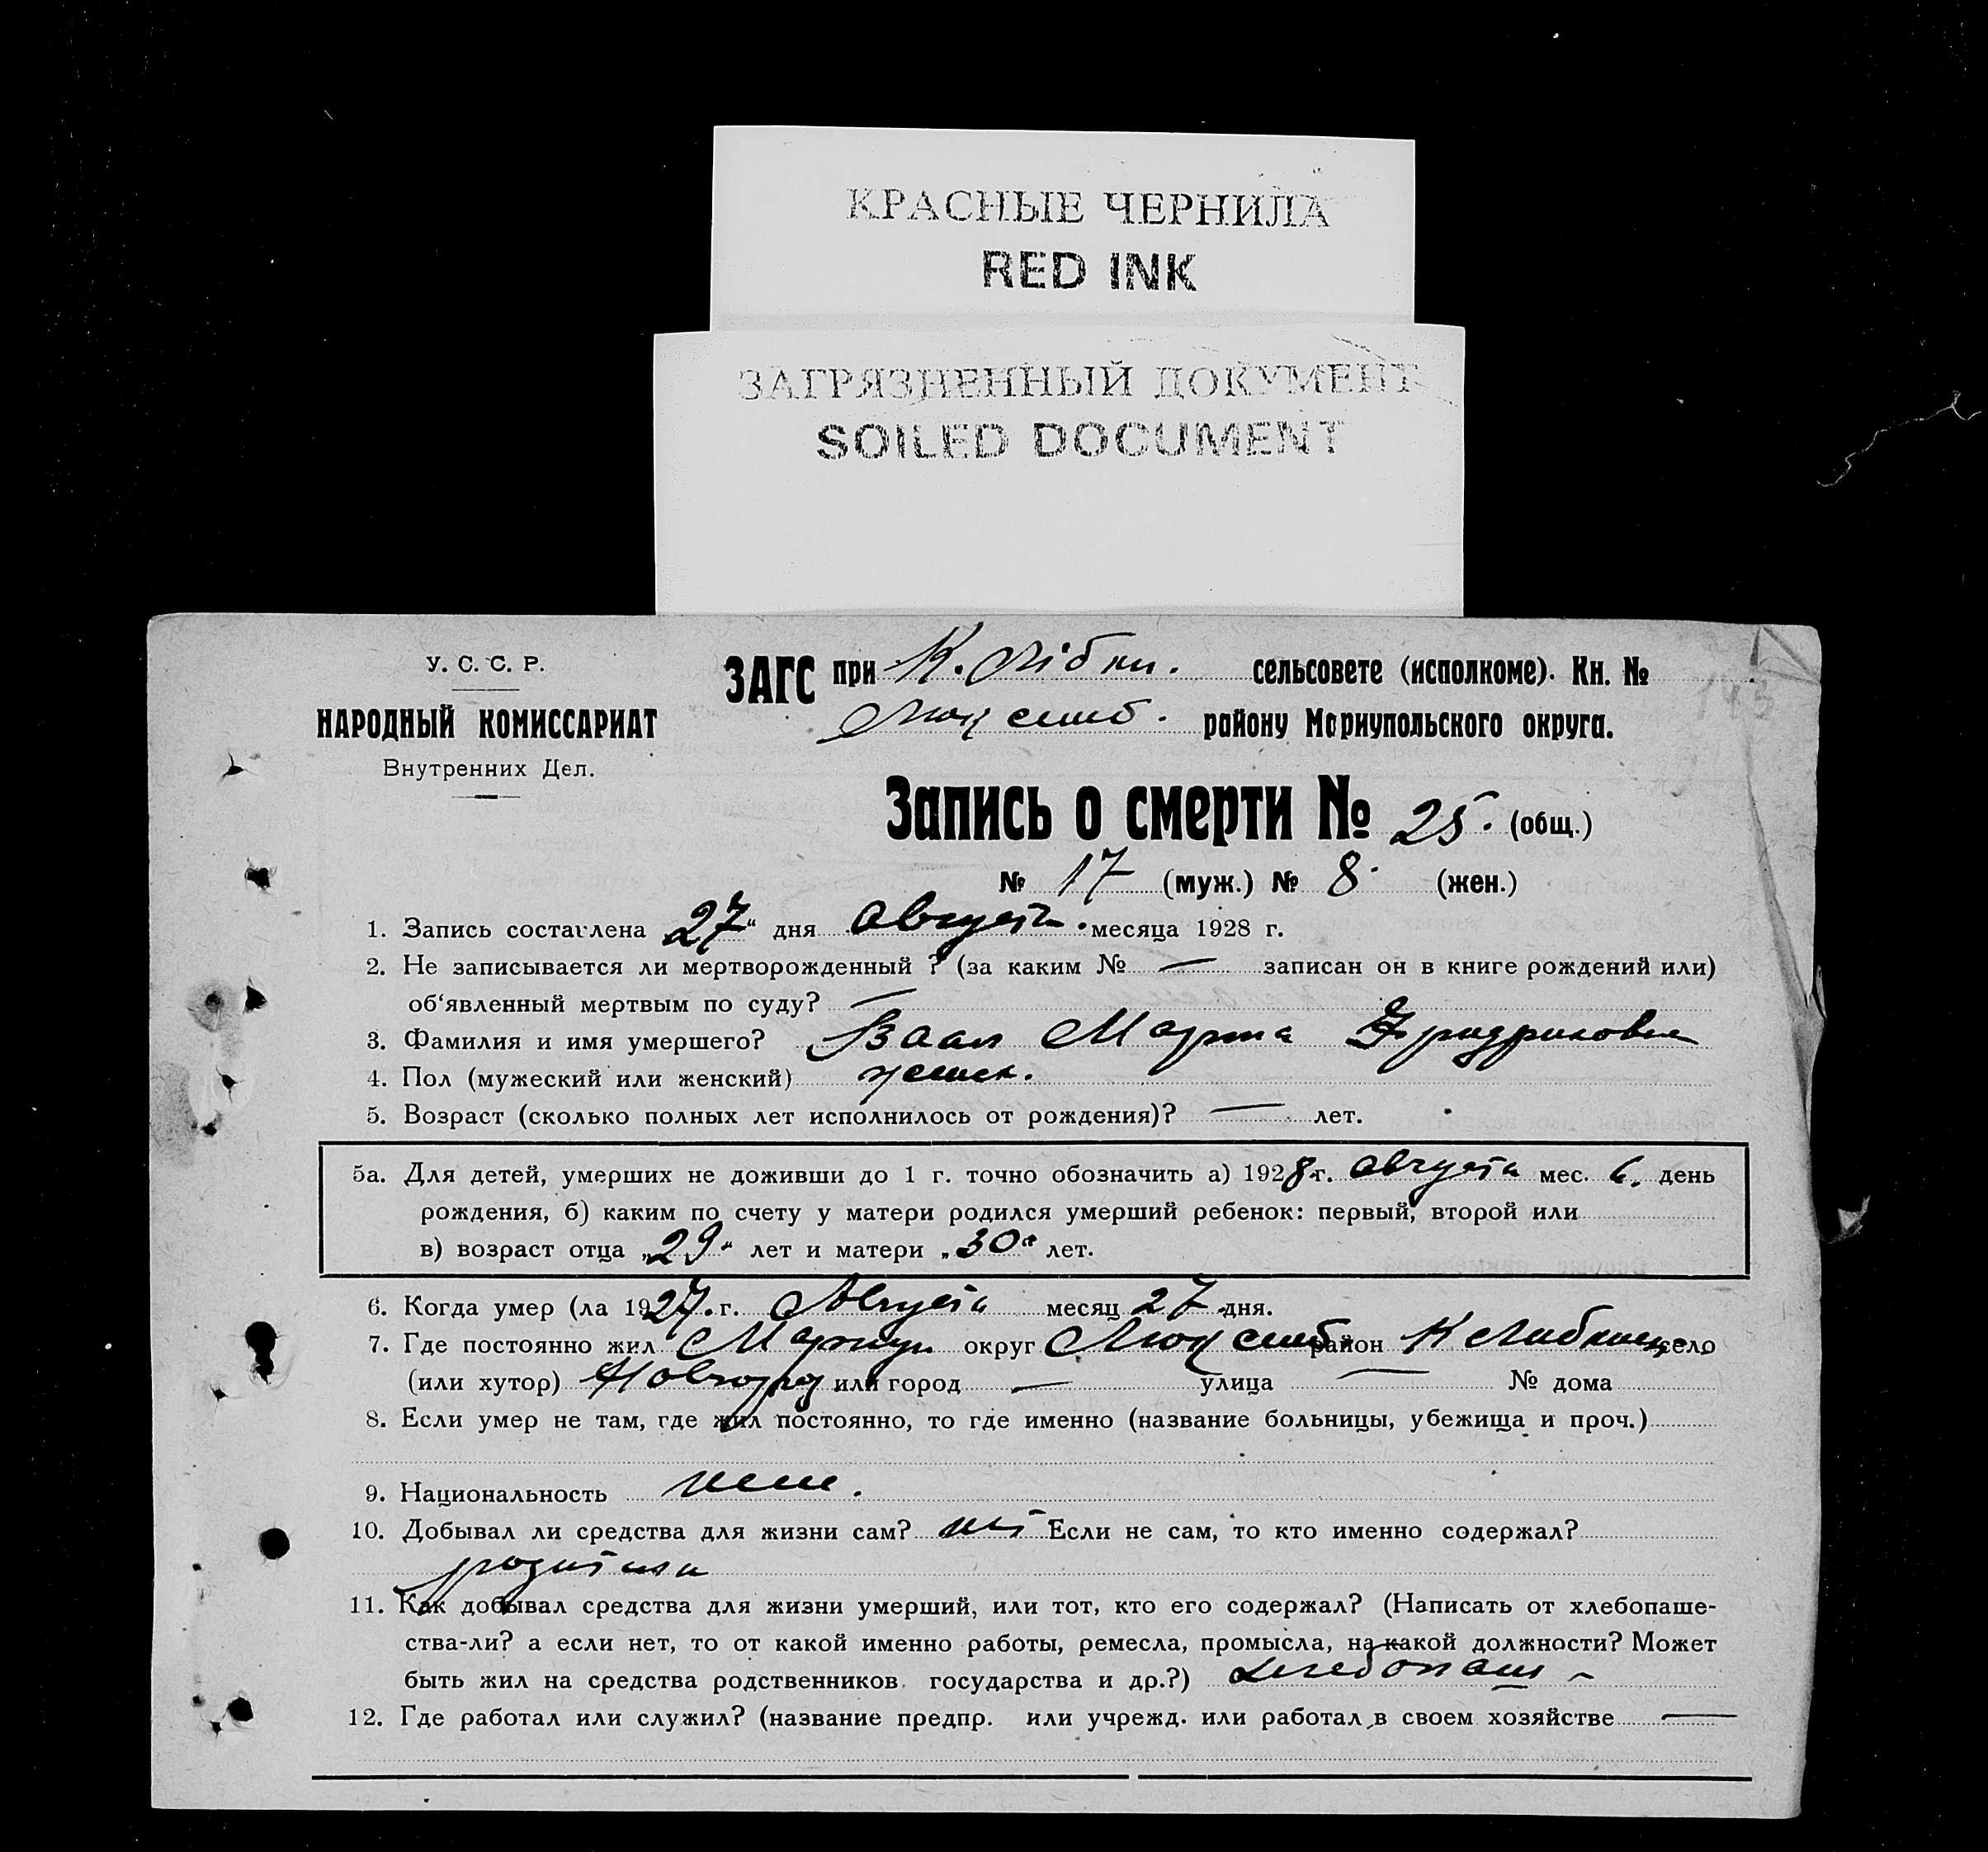 КРАСНЫЕ ЧЕРНИЛА
RED INK
ЗАГРЯЗНЕННЫЙ ДОКУМЕНТ
SOILED DOCUMENT
У. С. С. Р.
НАРОДНЫЙ КОМИССАРИАТ
Внутренних Дел.
ЗАГС при К. Лібкн. сельсовете (исполкоме). Кн. №
143
Люксемб. району Мариупольского округа.
Запись о смерти № 25. (общ.)
№ 17 (муж.) № 8. (жен.)
1. Запись составлена 27" дня Августа. месяца 1928 г.
2. Не записывается ли мертворожденный ? (за каким № — записан он в книге рождений или)
об'явленный мертвым по суду? —
3. Фамилия и имя умершего? Ваал Марта Фридриховна
4. Пол (мужеский или женский) женск.
5. Возраст (сколько полных лет исполнилось от рождения)? — лет.
5а. Для детей, умерших не доживши до 1 г. точно обозначить а) 1928 г. Августа мес. 6. день
рождения, б) каким по счету у матери родился умерший ребенок: первый, второй или
в) возраст отца „29" лет и матери „30" лет.
6. Когда умер (ла 1927. г. Августа месяц 27 дня.
7. Где постоянно жил Мариуп. округ Люксемб. район К Либкнех село
(или хутор) Новгород или город — улица — № дома
8. Если умер не там, где жил постоянно, то где именно (название больницы, убежища и проч.)
9. Национальность нем.
10. Добывал ли средства для жизни сам? нет Если не сам, то кто именно содержал?
родители
11. Как добывал средства для жизни умерший, или тот, кто его содержал? (Написать от хлебопаше-
ства-ли? а если нет, то от какой именно работы, ремесла, промысла, на какой должности? Может
быть жил на средства родственников, государства и др.?) хлебопаш –
12. Где работал или служил? (название предпр. или учрежд. или работал в своем хозяйстве —